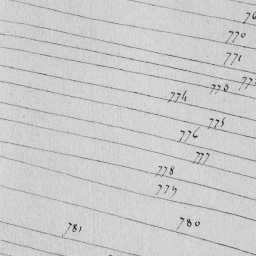 770
771
773
774
775
776
777
778
779
780
781